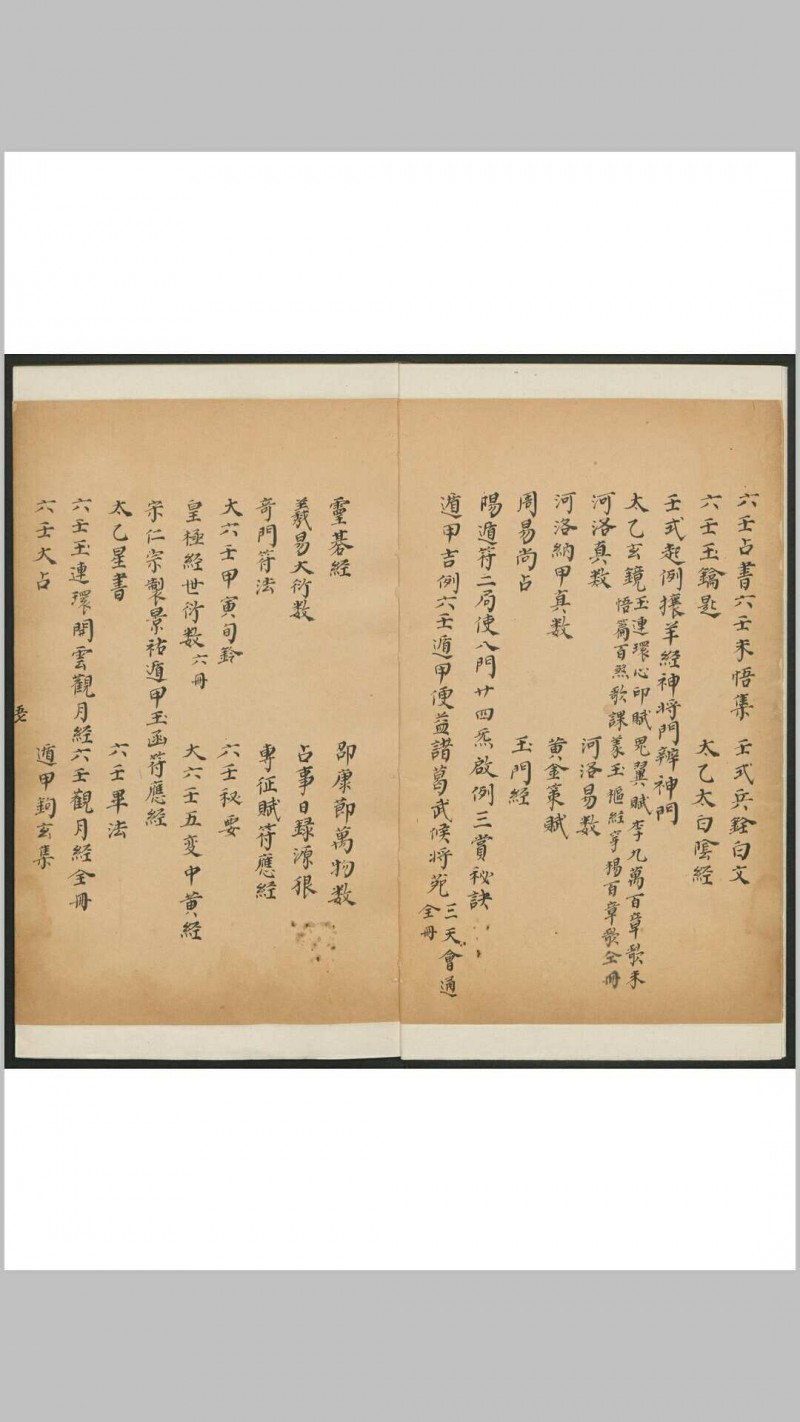 六壬占書六壬未悟集 壬式兵銓白文
六壬玉鑰匙 太乙太白陰經
壬式起例攘羊經神将門辧神門
太乙玄鏡 玉連環心印賦晃翼賦李九萬百章歌未
悟篇百煞歌課𦬆玉樞經寧楊百章歌全冊
河洛真数 河洛易数
河洛納甲真数 黄金策賦
周易尚占 玉門經
陽遁符二局使八門廿四炁啟例三賞秘訣
遁甲吉例六壬遁甲使益諸葛武候将苑 三天會通
全冊
靈棊經 卲康節萬物数
羲易大衍数 占事日録源根
竒門符法 専征賦符應經
大六壬甲寅旬鈐 六壬秘要
皇極經世衍数 六冊 大六壬五変中黄經
宗仁宗製景祐遁甲玉函符應經
太乙星書 六壬畢法
六壬玉連環開雲觀月經六壬觀月經全冊
六壬大占 遁甲鈎玄集